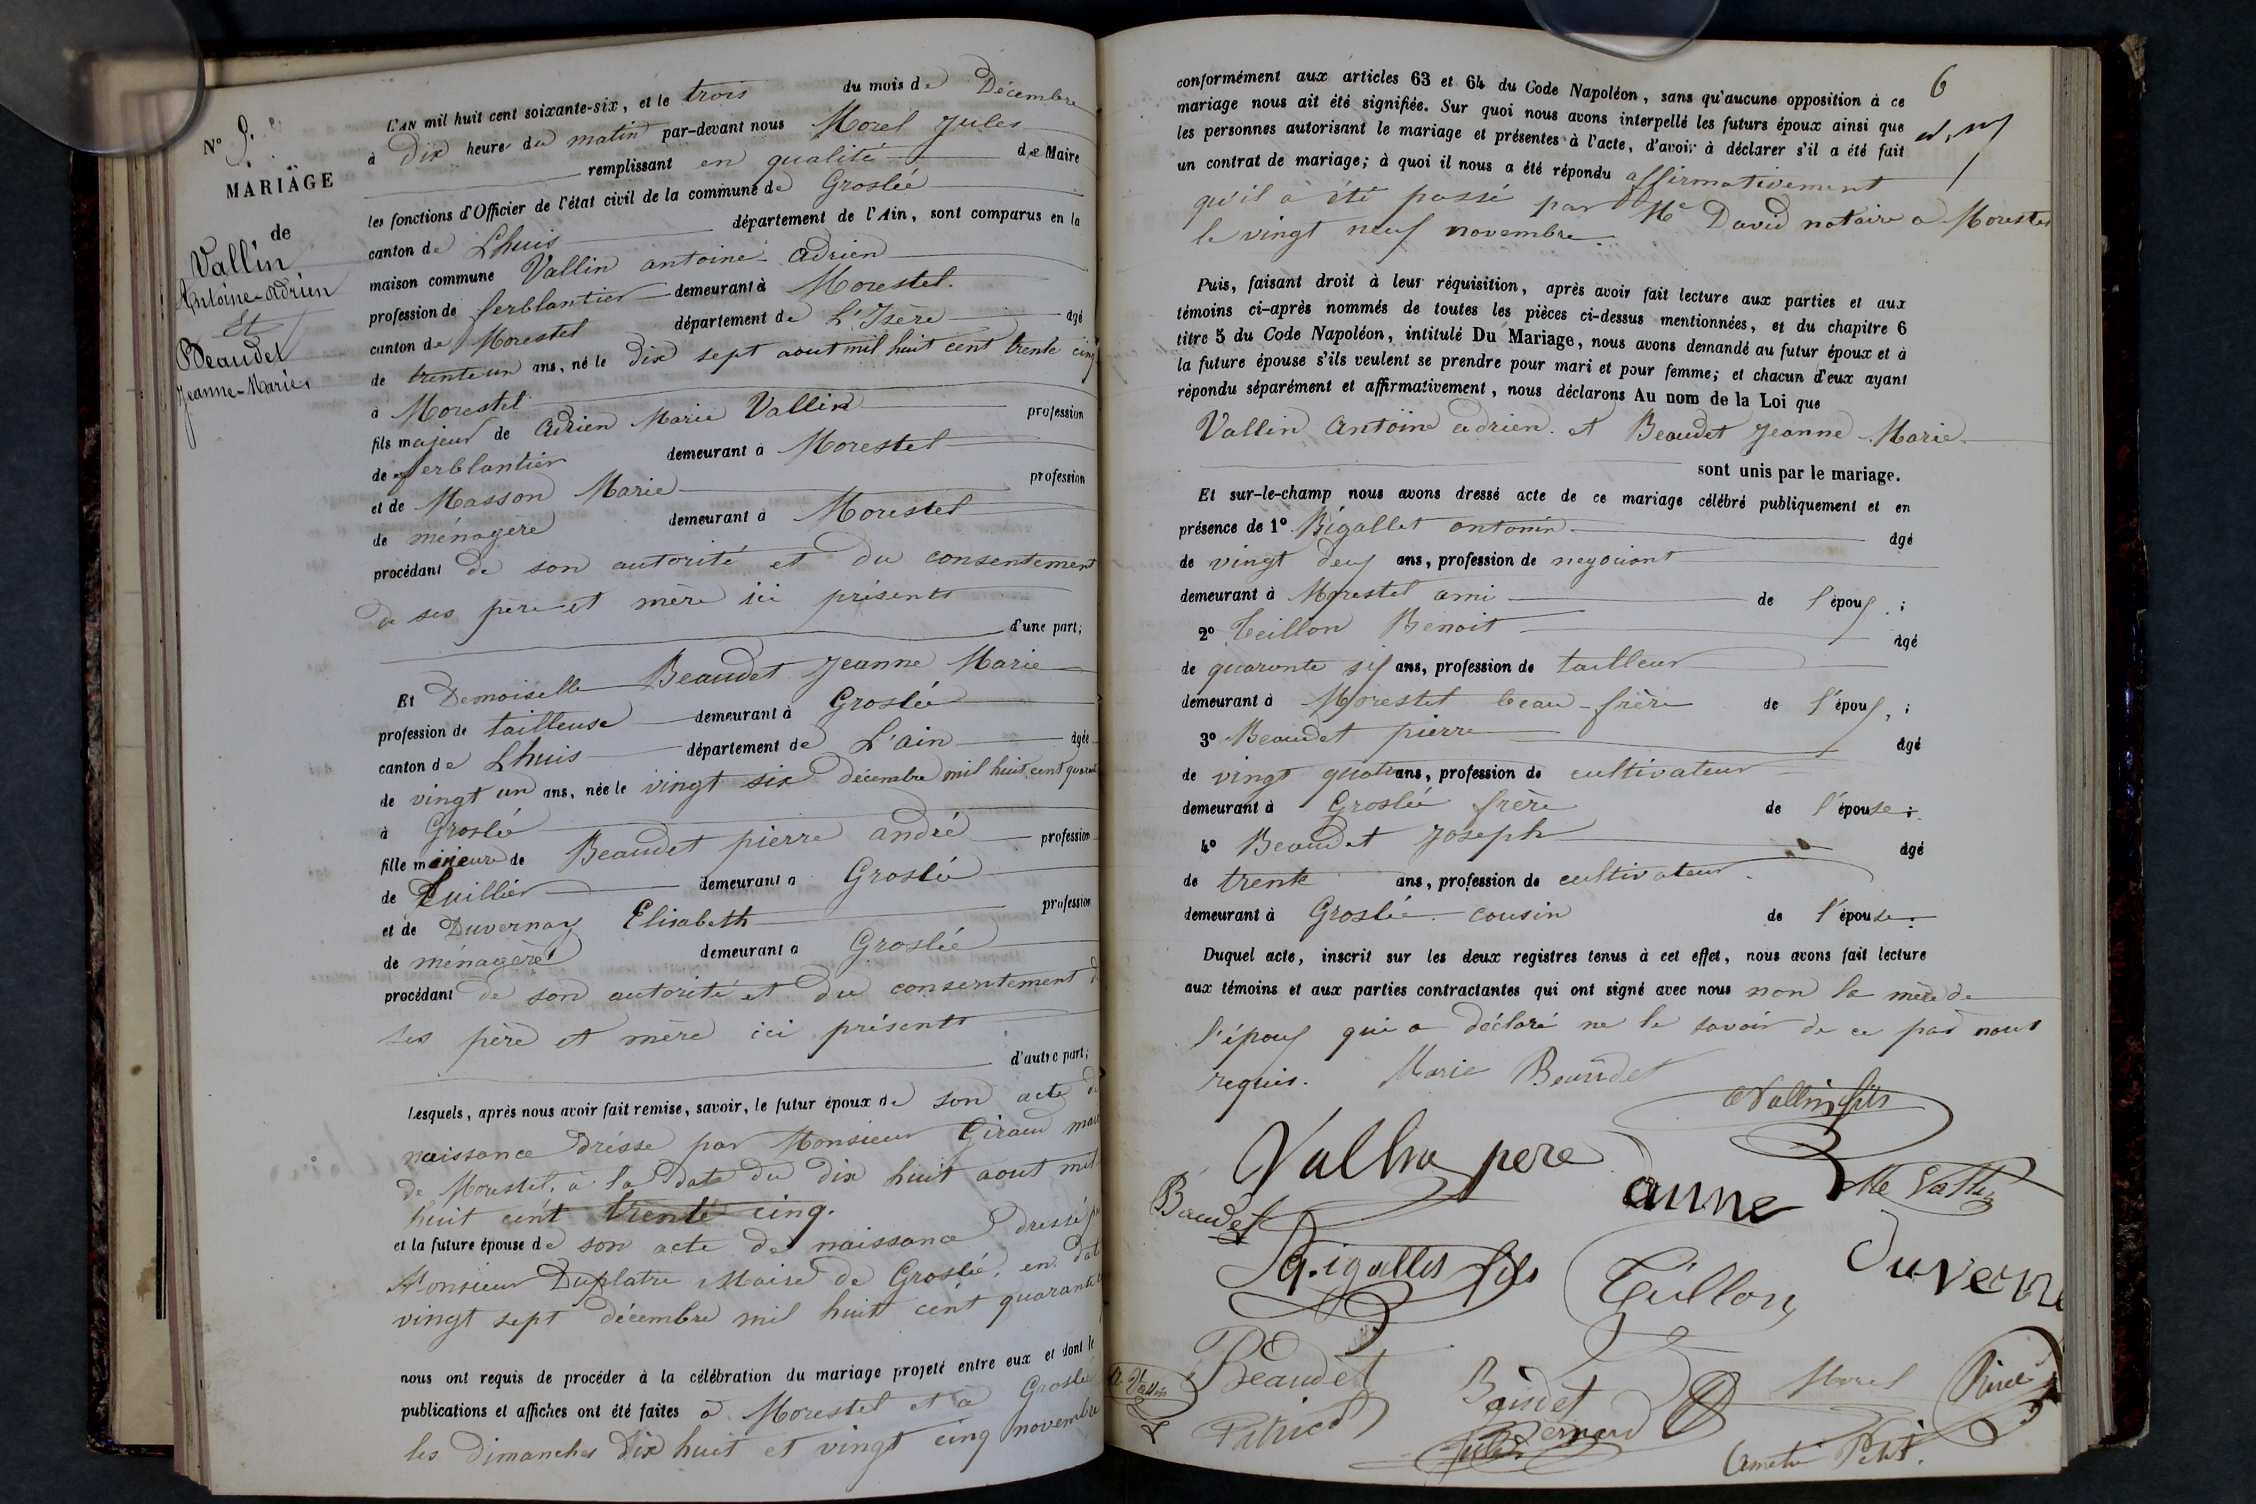 N° 9.
MARIAGE
de
Vallin
Antoine-Adrien
Et
Beaudet
Jeanne-Marie
L'AN mil huit cent soixante-six, et le trois du mois de Décembre
à dix heure du matin par-devant nous Morel Jules
remplissant en qualité de Maire
les fonctions d'Officier de l'état civil de la commune de Groslée
canton de Lhuis département de l'Ain, sont comparus en la
maison commune Vallin antoine Adrien
profession de ferblantier demeurant à Morestel.
canton de Morestel département de L'Isère âgé
de trente un ans, né le dix sept aout mil huit cent trente cinq
à Morestel
fils majeur de Adrien Marie Vallin profession
de ferblantier demeurant à Morestel
et de Masson Marie profession
de ménagère demeurant à Morestel
procédant de son autorité et du consentement
de ses père et mère ici présents
d'une part;
Et Demoiselle Beaudet Jeanne Marie
profession de tailleuse demeurant à Groslée
canton de Lhuis département de L'ain âgée
de vingt un ans, née le vingt six décembre mil huit cent quarante
à Groslée
fille mineure de Beaudet pierre andré profession
de Tuillier demeurant à Groslée
et de Duvernay Elisabeth profession
de ménagère demeurant à Groslée
procédant de son autorité et du consentement de
ses père et mère ici présents
d'autre part;
Lesquels, après nous avoir fait remise, savoir, le futur époux de son acte de
naissance drésse par Monsieur Giraud maire
de Morestel, à la date du dix huit aout mil
huit cent trente cinq.
et la future épouse de son acte de naissance dressé
Monsieur Duplatre Maire de Groslée, en date
vingt sept décembre mil huit cent quarante
nous ont requis de procéder à la célébration du mariage projeté entre eux et dont le
publications et affiches ont été faites à Morestel et à Groslée
les dimanches dix huit et vingt cinq novembre
6
conformément aux articles 63 et 64 du Code Napoléon, sans qu'aucune opposition à ce
mariage nous ait été signifiée. Sur quoi nous avons interpellé les futurs époux ainsi que
les personnes autorisant le mariage et présentes à l'acte, d'avoir à déclarer s'il a été fait
un contrat de mariage; à quoi il nous a été répondu affirmativement
qu'il a été passé par Me David notaire a Morestel
le vingt neuf novembre.
Puis, faisant droit à leur réquisition, après avoir fait lecture aux parties et aux
témoins ci-après nommés de toutes les pièces ci-dessus mentionnées, et du chapitre 6
titre 5 du Code Napoléon, intitulé Du Mariage, nous avons demandé au futur époux et à
la future épouse s'ils veulent se prendre pour mari et pour femme; et chacun d'eux ayant
répondu séparément et affirmativement, nous déclarons Au nom de la Loi que
Vallin Antoine adrien. et Beaudet Jeanne-Marie.
sont unis par le mariage.
Et sur-le-champ nous avons dressé acte de ce mariage célébré publiquement et en
présence de 1° Bigallet antonin âgé
de vingt deux ans, profession de negociant
demeurant à Morestel ami de l'époux;
2° Teillon Benoit âgé
de quarante six ans, profession de tailleur
demeurant à Morestel beau-frère de l'époux;
3° Beaudet pierre âgé
de vingt quatre ans, profession de cultivateur
demeurant à Groslée frère de l'épouse;
4° Beaudet Joseph âgé
de trente ans, profession de cultivateur
demeurant à Groslée cousin de l'épouse.
Duquel acte, inscrit sur les deux registres tenus à cet effet, nous avons fait lecture
aux témoins et aux parties contractantes qui ont signé avec nous non la mère de
l'époux qui a déclaré ne le savoir de ce par nous
requis. Marie Beaudet
Vallin fils
Vallin pere
Baudet
Bigallet fils
Teillon
Beaudet
Baudet
Morel